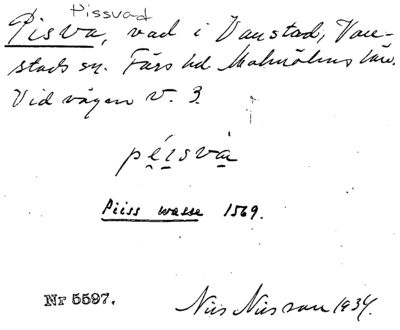 Pissvad
Pisva, vad i Vanstad, Van-
stads sn. Färs hd. Malmöhus län.
Vid vägen V. 3.
péɪsvà
Piiss wasse 1569.
Nr 5597.
Nils Nilsson 1934.